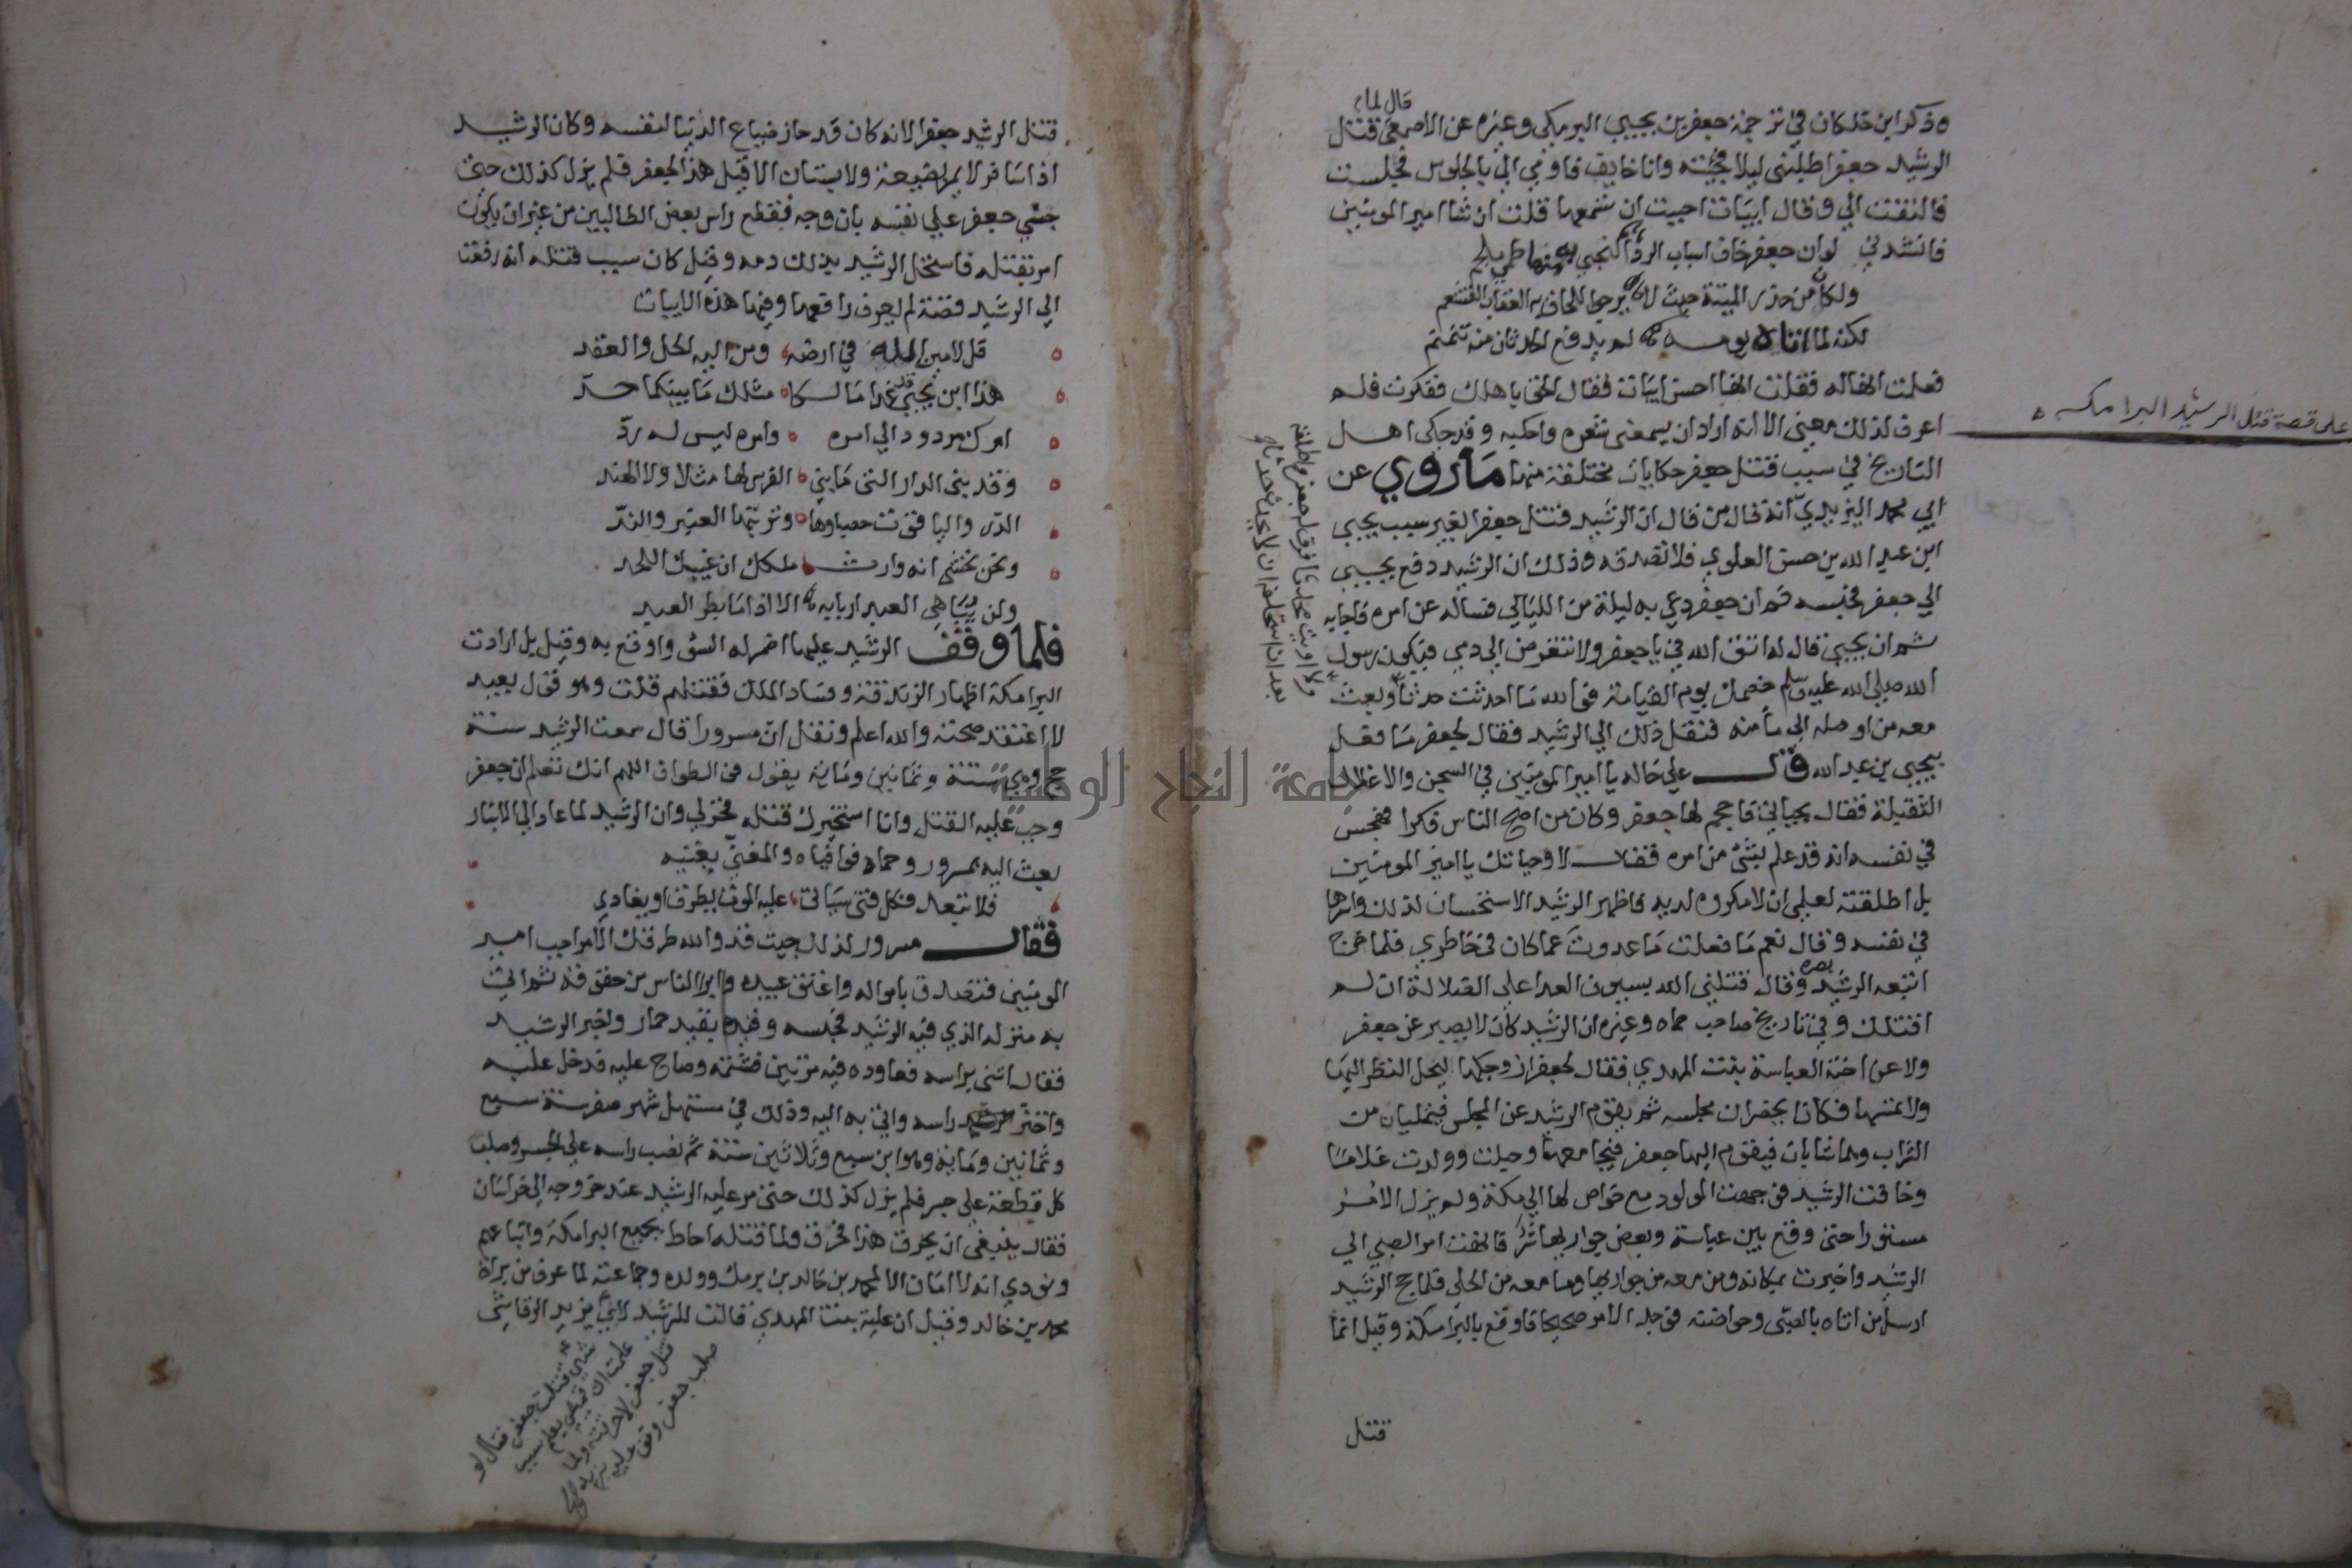 قال لما
وذكر ابن خلكان في ترجمة جعفر بن يحيي البرمكي وغيره عن الاصمعي قتل
الرشيد جعفرا طلبني ليلا فجيته وانا خايف فاومي الي بالجلوس فجلست
فالتفت الي وقال ابيات احببت ان تسمعها قلت ان شا امير المومنين
فانشدني لو ان جعفر خاف اسباب الردا لنجي به منها طمر ملجم
ولكان من حذر المنية حيث لا يرجوا اللحاق به العقاب القشعم
لكنه لما اتاه يومه لم يدفع الحدثان منه منجم
فعلمت انها له فقلت انها احسن ابيات فقال الحق باهلك ففكرت فلم
اعرف لذلك معنى الا انه اراد ان يسمعنى شعره واحكيه وقد حكى اهل
على قصة قتل الرشيد البرامكه
التاريخ في سبب قتل جعفر حكايات مختلفة منها ماروي عن
ابي محمد اليزيدي انه قال من قال ان الرشيد قتل جعفرا لغير سبب يحيي
ابن عبد الله بن حسن العلوي فلا تصدقه وذلك ان الرشيد دفع يحيى
الي جعفر فحبسه ثم ان جعفر دعي به ليلة من الليالي فساله عن امره فاجابه
ثم ان يحيي قال له اتق الله في يا جعفر ولا تتعرض الي دمي فيكون رسول
الله صلى الله عليه وسلم خصمك يوم القيامة فوالله ما احدثت حدثا وبعث
ولا اويت محدثا فرق له جعفر واطلقه
بعد ان استحلفه ان لا يحدث حدثا
معه من اوصله الى مأمنه فنقل ذلك الي الرشيد فقال لجعفر ما فعل
يحيي بن عبد الله قال على حاله يا امير المومنين في السجن والاغلال
الثقيلة فقال بحياتي فاحجم لها جعفر وكان من اصح الناس فكرا فهجس
في نفسه انه قد علم بشي من امره فقال لا وحياتك يا امير المومنين
بل اطلقته لعلمي ان لا مكروه لديه فاظهر الرشيد الاستحسان لذلك واسرها
في نفسه وقال نعم ما فعلت ما عدوت عما كان في خاطري فلما خرج
اتبعه الرشيد بصره وقال قتلني الله بسيوف العدا على الضلالة ان لم
اقتلك وفي تاريخ صاحب حماه وغيره ان الرشيد كان لا يصبر عن جعفر
ولا عن اخته العباسة بنت المهدي فقال لجعفر ازوجكها ليحل النظر اليها
ولا تمسها فكانا يحضران مجلسه ثم يقوم الرشيد عن المجلس فيمتليان من
الشراب وهما شابان فيقوم اليها جعفر فيجامعها وحبلت وولدت غلاما
وخافت الرشيد فوجهت المولود مع خواص لها الي مكة ولم يزل الامر
مستورا حتى وقع بين عباسة وبعض جواريها شر فانهت امر الصبي الي
الرشيد واخبرت بمكانه ومن معه من جواريها وما معه من الحلي فلما حج الرشيد
ارسل من اتاه بالصبي وحواضنه فوجد الامر صحيحا فاوقع بالبرامكة وقيل انما
قتل
قتل الرشيد جعفرا لانه كان قد حاز ضياع الدنيا لنفسه وكان الرشيد
اذا سافر لا يمر بضيعة ولا بستان الا قيل هذا لجعفر فلم يزل كذلك حتى
جني جعفر على نفسه بان وجه فقطع راس بعض الطالبيين من غير ان يكون
امر بقتله فاستحل الرشيد بذلك دمه وقيل كان سبب قتله انه رفعت
الي الرشيد قصة لم يعرف رافعها وفيها هذه الابيات
قل لامين الله في ارضه ومن اليه الحل والعقد
هذا ابن يحيي قد غدا مالكا مثلك ما بينكما حد
امرك مردود الي امره وامره ليس له رد
وقد بنى الدار التى ما بني الفرس لها مثلا ولا الهند
الدر والياقوت حصباوها وتربتها العنبر والند
ونحن نخشى انه وارث ملكك ان غيبك اللحد
ولن يباهى العبد اربابه الا اذا ما بطر العبد
فلما وقف الرشيد عليها اضمر له السو واوقع به وقيل بل ارادت
البرامكة اظهار الزندقة وفساد الملك فقتلهم قلت وهو قول بعيد
لا اعتقد صحته والله اعلم ونقل ان مسرورا قال سمعت الرشيد سنة
حج وهي ستة وثمانين وماية يقول في الطواف اللهم انك تعلم ان جعفر
وجب عليه القتل وانا استخيرك قتله فخر لي وان الرشيد لما عاد الي الانبار
بعث اليه بمسرور وحماد فوافياه والمغني يغنيه
فلا تبعد فكل فتى سياتى عليه الموت يطرق او يغادي
فقال مسرور لذلك جيت قد والله طرقك الامر اجب امير
المومنين فتصدق بامواله واعتق عبيده وابرا الناس من حقوقه ثم اتي
به منزله الذي فيه الرشيد فحبسه وقيده بقيد حمار واخبر الرشيد
فقال اتنى براسه فعاوده فيه مرتين فشتمه وصاح عليه فدخل عليه
واحتز راسه واتي به اليه وذلك في مستهل شهر صفر سنة سبع
وثمانين وماية وهو ابن سبع وثلاثين سنة ثم نصب راسه على الجسر وصلب
كل قطعة على جسر فلم يزل كذلك حتى مر عليه الرشيد عند خروجه الى خراسان
فقال ينبغى ان يحرق هذا فحرق ولما قتله احاط بجميع البرامكة واتباعهم
ونودي انه لا امان الا لمحمد بن خالد بن برمك وولده وجماعته لما عرف من براة
محمد بن خالد وقيل ان علية بنت المهدي قالت للرشيد لاي يزيد الرقاشي
شي قتلت جعفر فقال لو
علمت ان قميصي يعلم سبب
قتل جعفر لاحرقته ولما
صلب جعفر وقف عليه يزيد
جامعة النجاح الوطنية